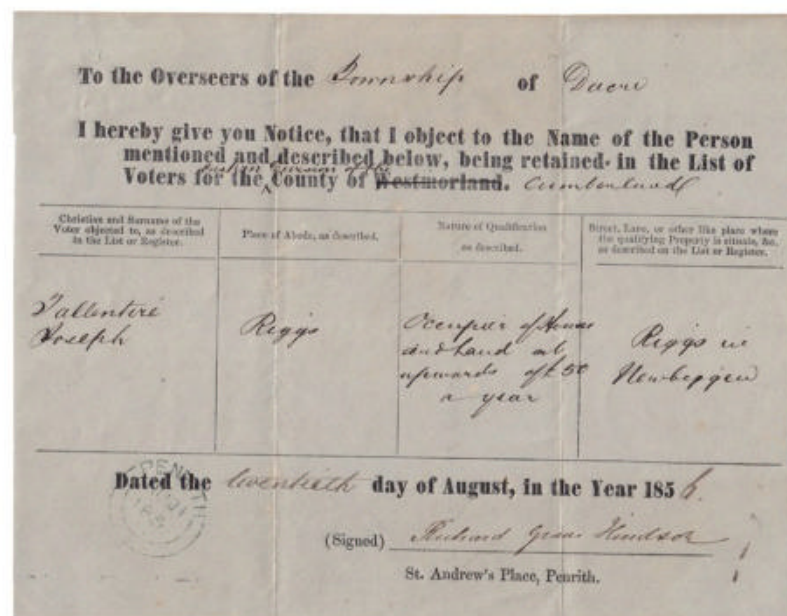 To the Overseers of the Township of Dacre
I hereby give you Notice, that I object to the Name of the Person
mentioned and described below, being retained in the List of
Voters for the County of Westmorland. Cumberland
Christian and Surname of the
Voter objected to, as described
in the List or Register.
Place of Abode, as described.
Nature of Qualification
as described.
Street, Lane, or other like place where
the qualifying Property is situate, &c.
as described on the List or Register.
Tallentire
Joseph
Riggs
Occupier of House
and Land at
upwards of £50
a year
Riggs in
Newbiggin
Dated the twentieth day of August, in the Year 1856.
(Signed) Richard Hindson
St. Andrew's Place, Penrith.
PENRITH